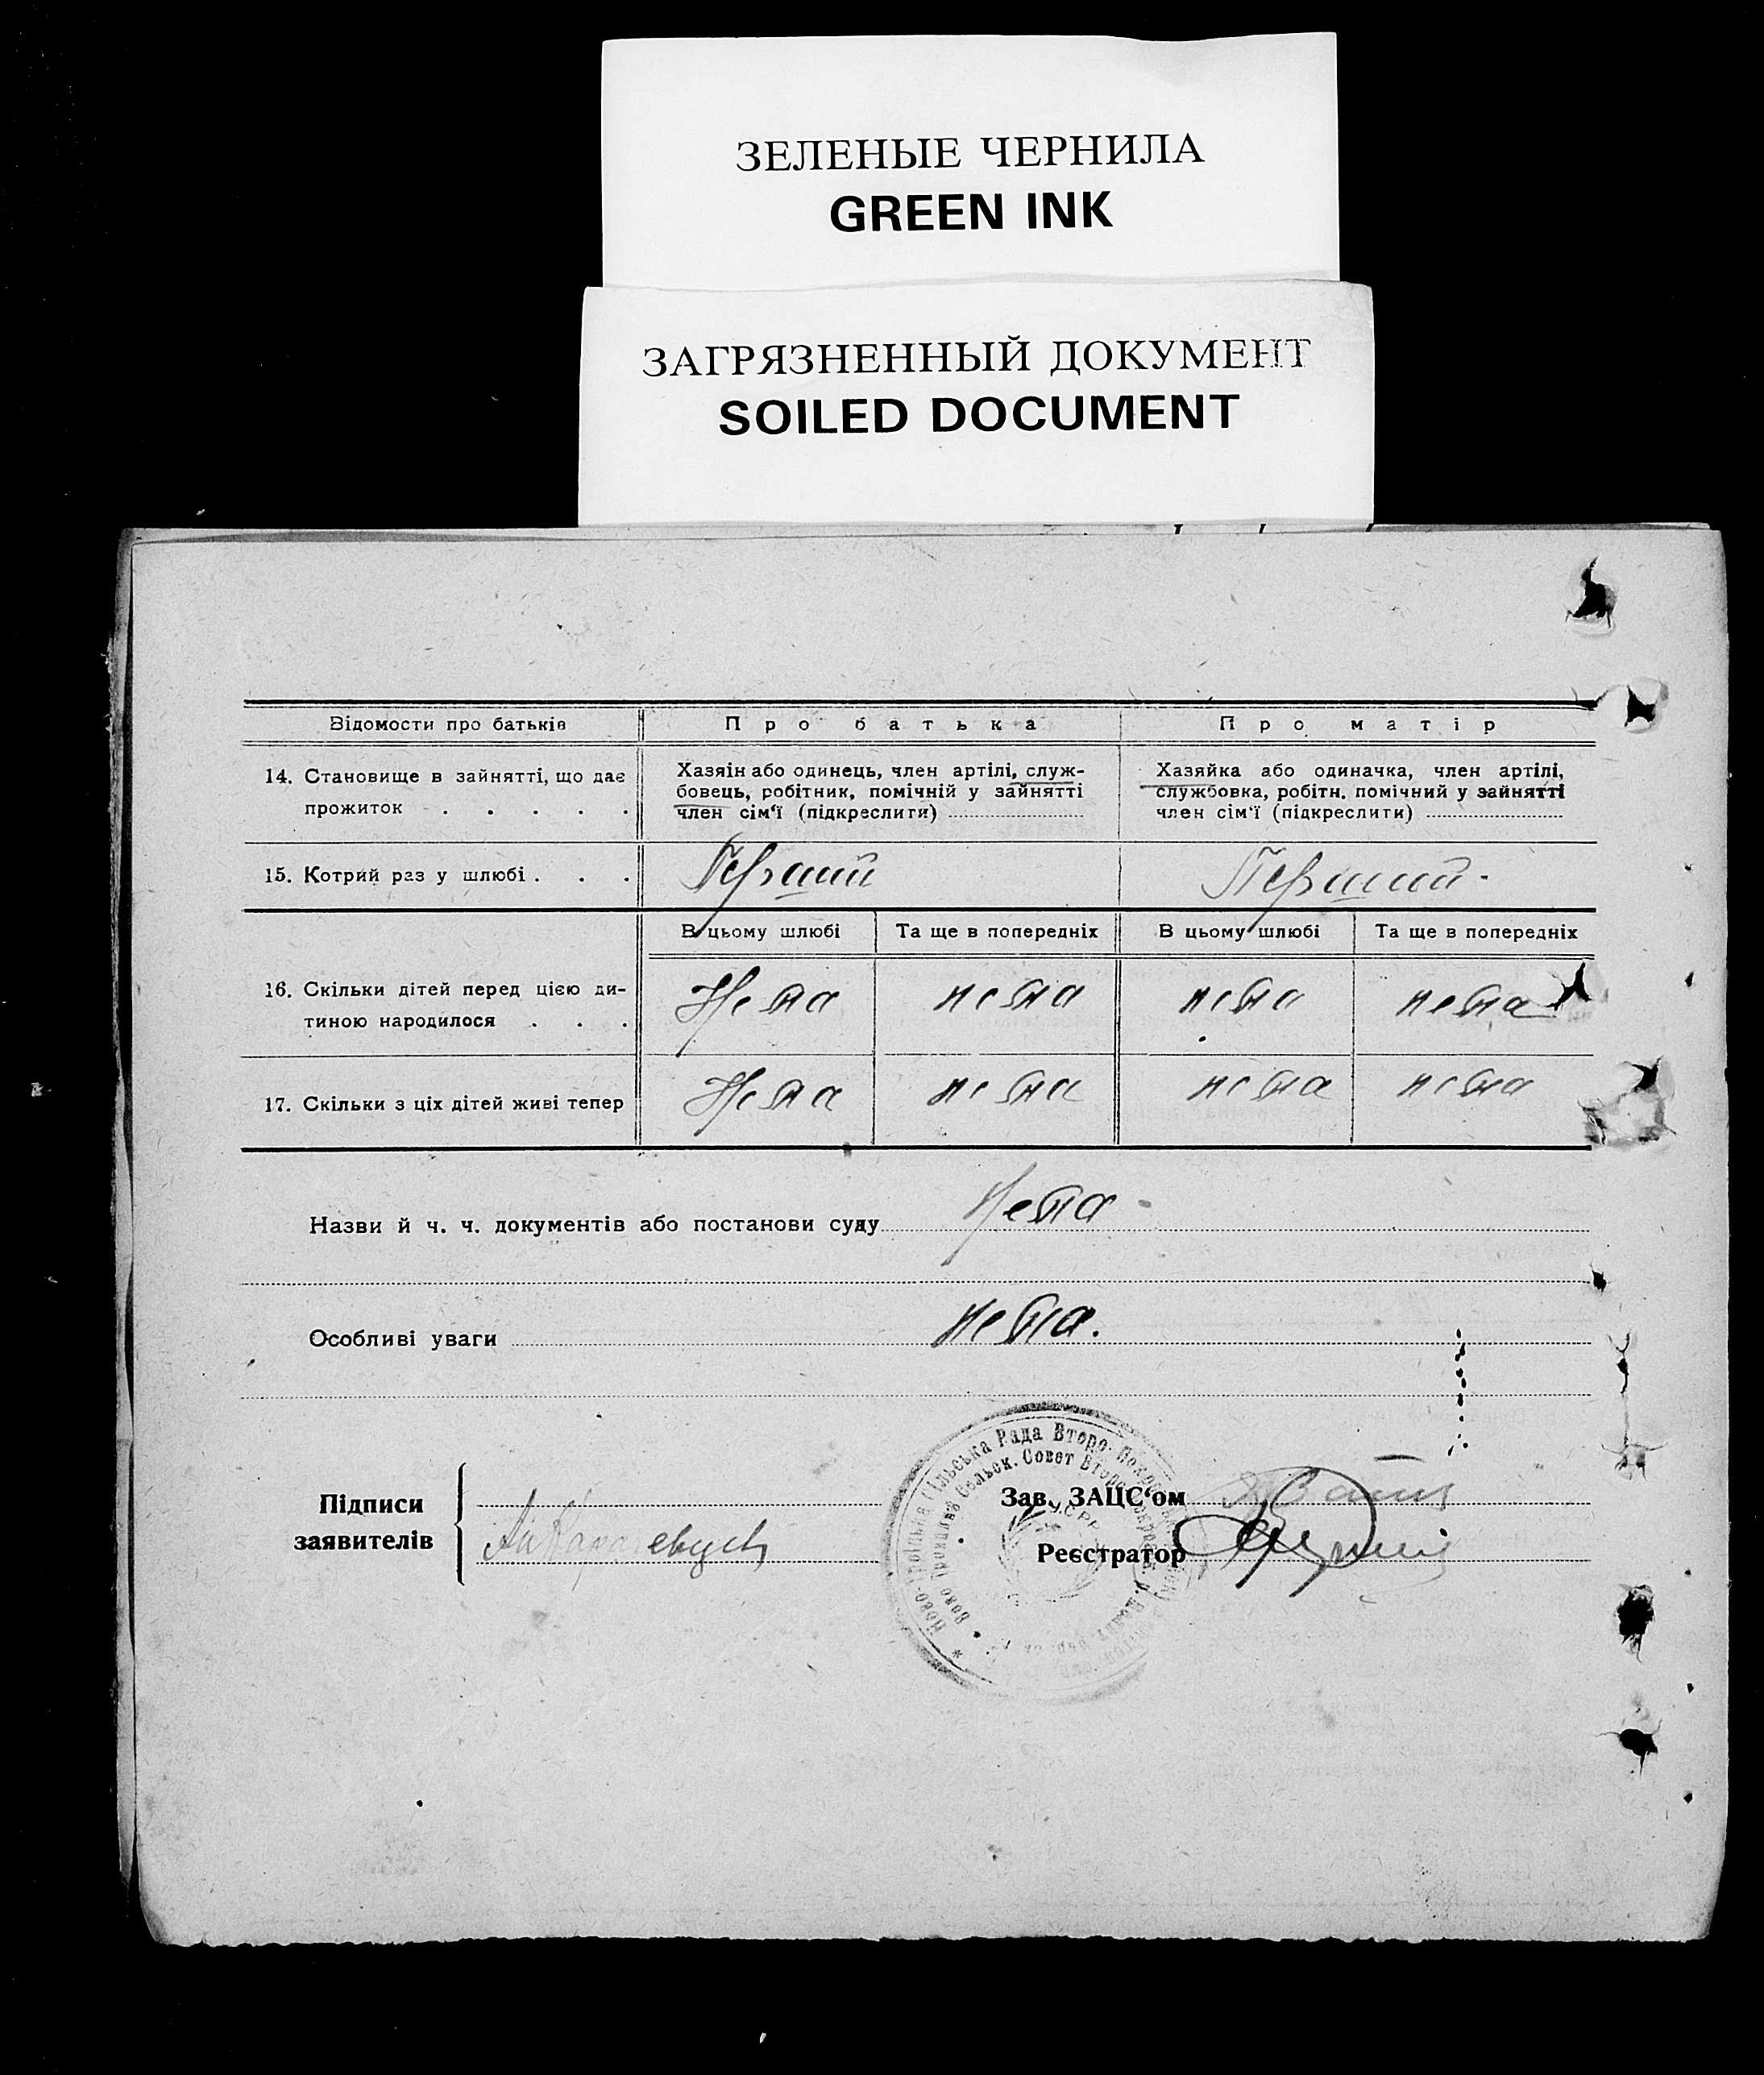 ЗЕЛЕНЫЕ ЧЕРНИЛА
GREEN INK
ЗАГРЯЗНЕННЫЙ ДОКУМЕНТ
SOILED DOCUMENT
Відомости про батьків
Про батька
Про матір
14. Становище в зайнятті, що дає
прожиток . . . . .
Хазяін або одинець, член артілі, служ-
бовець, робітник, помічній у зайнятті
член сім'ї (підкреслити)
Хазяйка або одиначка, член артілі,
службовка, робітн. помічний у зайнятті
член сім'ї (підкреслити)
15. Котрий раз у шлюбі . . .
Перший
Перший.
В цьому шлюбі
Та ще в попередніх
В цьому шлюбі
Та ще в попередніх
16. Скільки дітей перед цією ди-
тиною народилося . . .
Нема
нема
нема
нема
17. Скільки з ціх дітей живі тепер
Нема
нема
нема
нема
Назви й ч. ч. документів або постанови суду Нема
Особливі уваги нема.
Підписи
заявителів
Зав. ЗАЦС'ом
Реєстратор
Сільська Рада Второ-
Сельск. Совет Второ-